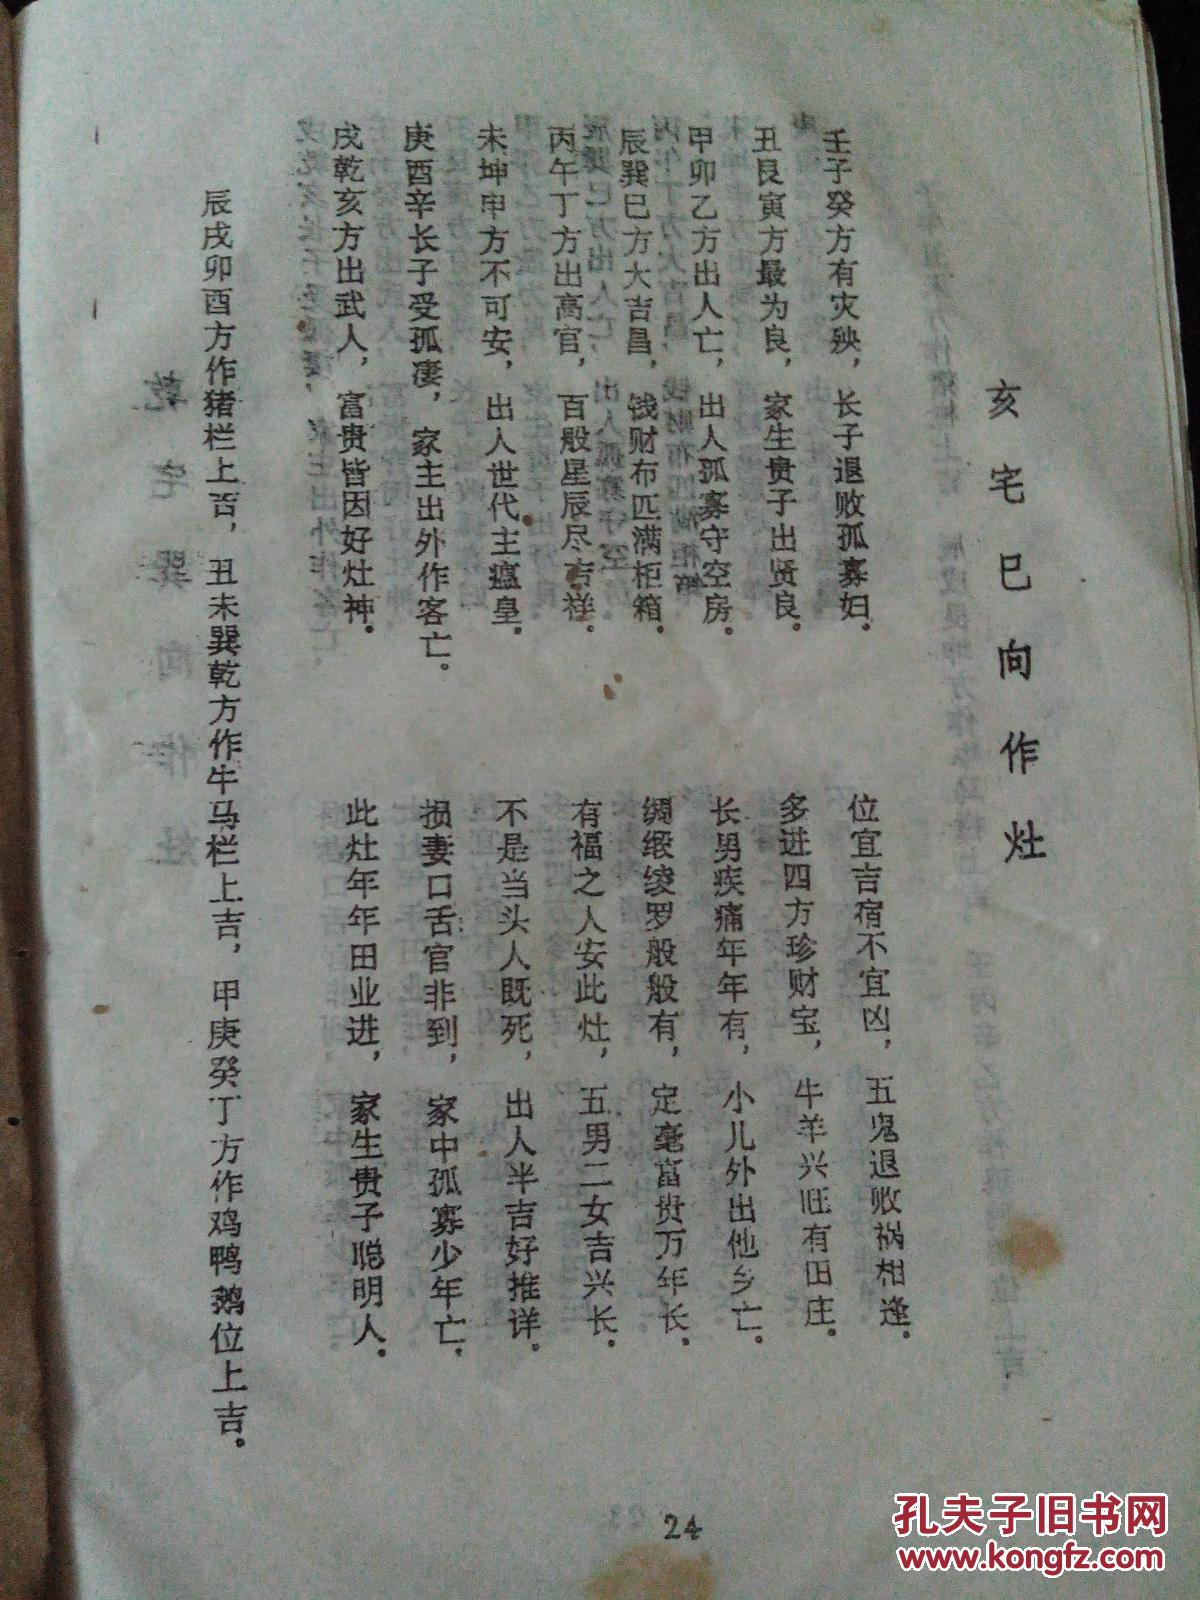 亥宅巳向作灶
壬子癸方有灾殃，长子退败孤寡妇．
位宜吉宿不宜凶，五鬼退败祸相逢．
丑艮寅方最为良，家生贵子出贤良．
多进四方珍财宝，牛羊兴旺有田庄．
甲卯乙方出人亡，出人孤寡守空房．
长男疾痛年年有，小儿外出他乡亡．
辰巽巳方大吉昌，饯财布匹满柜箱．
绸缎绫罗般般有，定毫富贵万年长．
丙午丁方出高官，百般星辰尽吉祥．
有福之人安此灶，五男二女吉兴长．
未坤申方不可安，出人世代主瘟皇．
不是当头人既死，出人半吉好推详．
庚酉辛长子受孤凄，家主出外作客亡．
损妻口舌官非到，家中孤寡少年亡．
戌乾亥方出武人，富贵皆因好灶神．
此灶年年田业进，家生贵子聪明人．
辰戌卯酉方作猪栏上吉，丑未巽乾方作牛马栏上吉，甲庚癸丁方作鸡鸭鹅位上吉．
24
孔夫子旧书网
www.kongfz.com